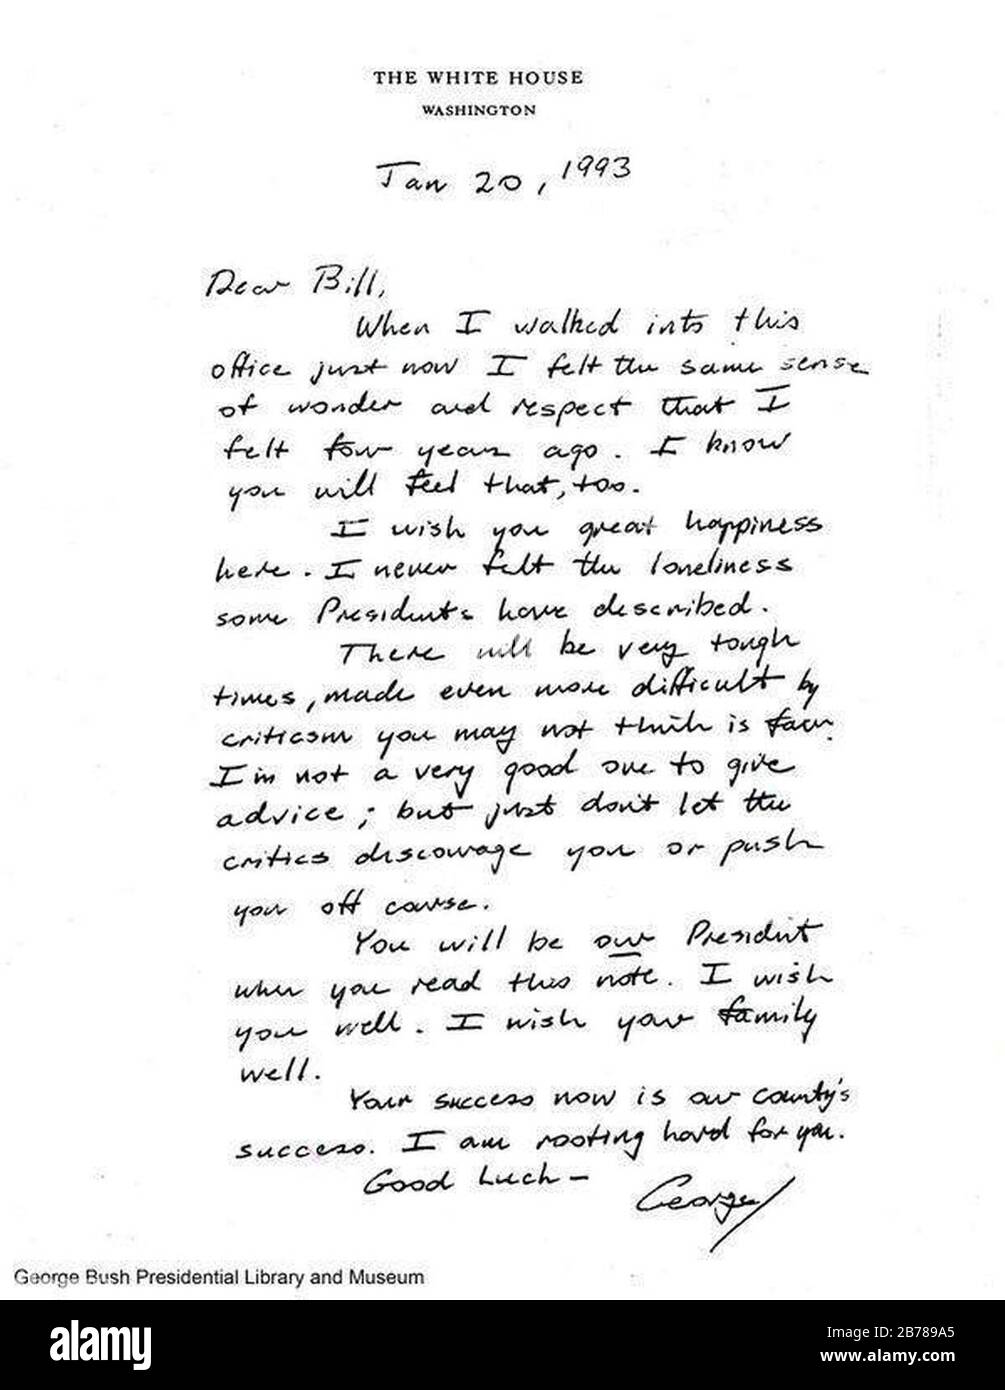 THE WHITE HOUSE
WASHINGTON
Jan 20, 1993
Dear Bill,
When I walked into this
office just now I felt the same sense
of wonder and respect that I
felt four years ago. I know
you will feel that, too.
I wish you great happiness
here. I never felt the loneliness
some Presidents have described.
There will be very tough
times, made even more difficult by
criticism you may not think is fair.
I'm not a very good one to give
advice; but just don't let the
critics discourage you or push
you off course.
You will be our President
when you read this note. I wish
you well. I wish your family
well.
Your success now is our county's
success. I am rooting hard for you.
Good Luck —
George
George Bush Presidential Library and Museum
alamy
Image ID: 2B789A5
www.alamy.com